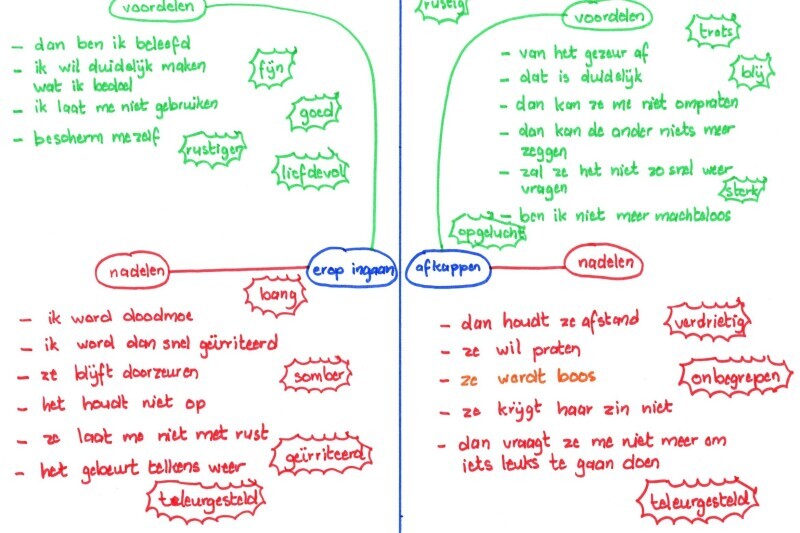 voordelen
- dan ben ik beleefd
- ik wil duidelijk maken
wat ik bedoel
fijn
- ik laat me niet gebruiken
goed
- bescherm mezelf
rustiger
liefdevol
nadelen
erop ingaan
bang
- ik word doodmoe
- ik word dan snel geïrriteerd
- ze blijft doorzeuren
somber
- het houdt niet op
- ze laat me niet met rust
geïrriteerd
- het gebeurt telkens weer
teleurgesteld
rustig
voordelen
trots
- van het gezeur af
- dat is duidelijk
blij
- dan kan ze me niet ompraten
- dan kan de ander niets meer
zeggen
- zal ze het niet zo snel weer
vragen
sterk
- ben ik niet meer machteloos
opgelucht
afkappen
nadelen
- dan houdt ze afstand
verdrietig
- ze wil praten
- ze wordt boos
onbegrepen
- ze krijgt haar zin niet
- dan vraagt ze me niet meer om
iets leuks te gaan doen
teleurgesteld